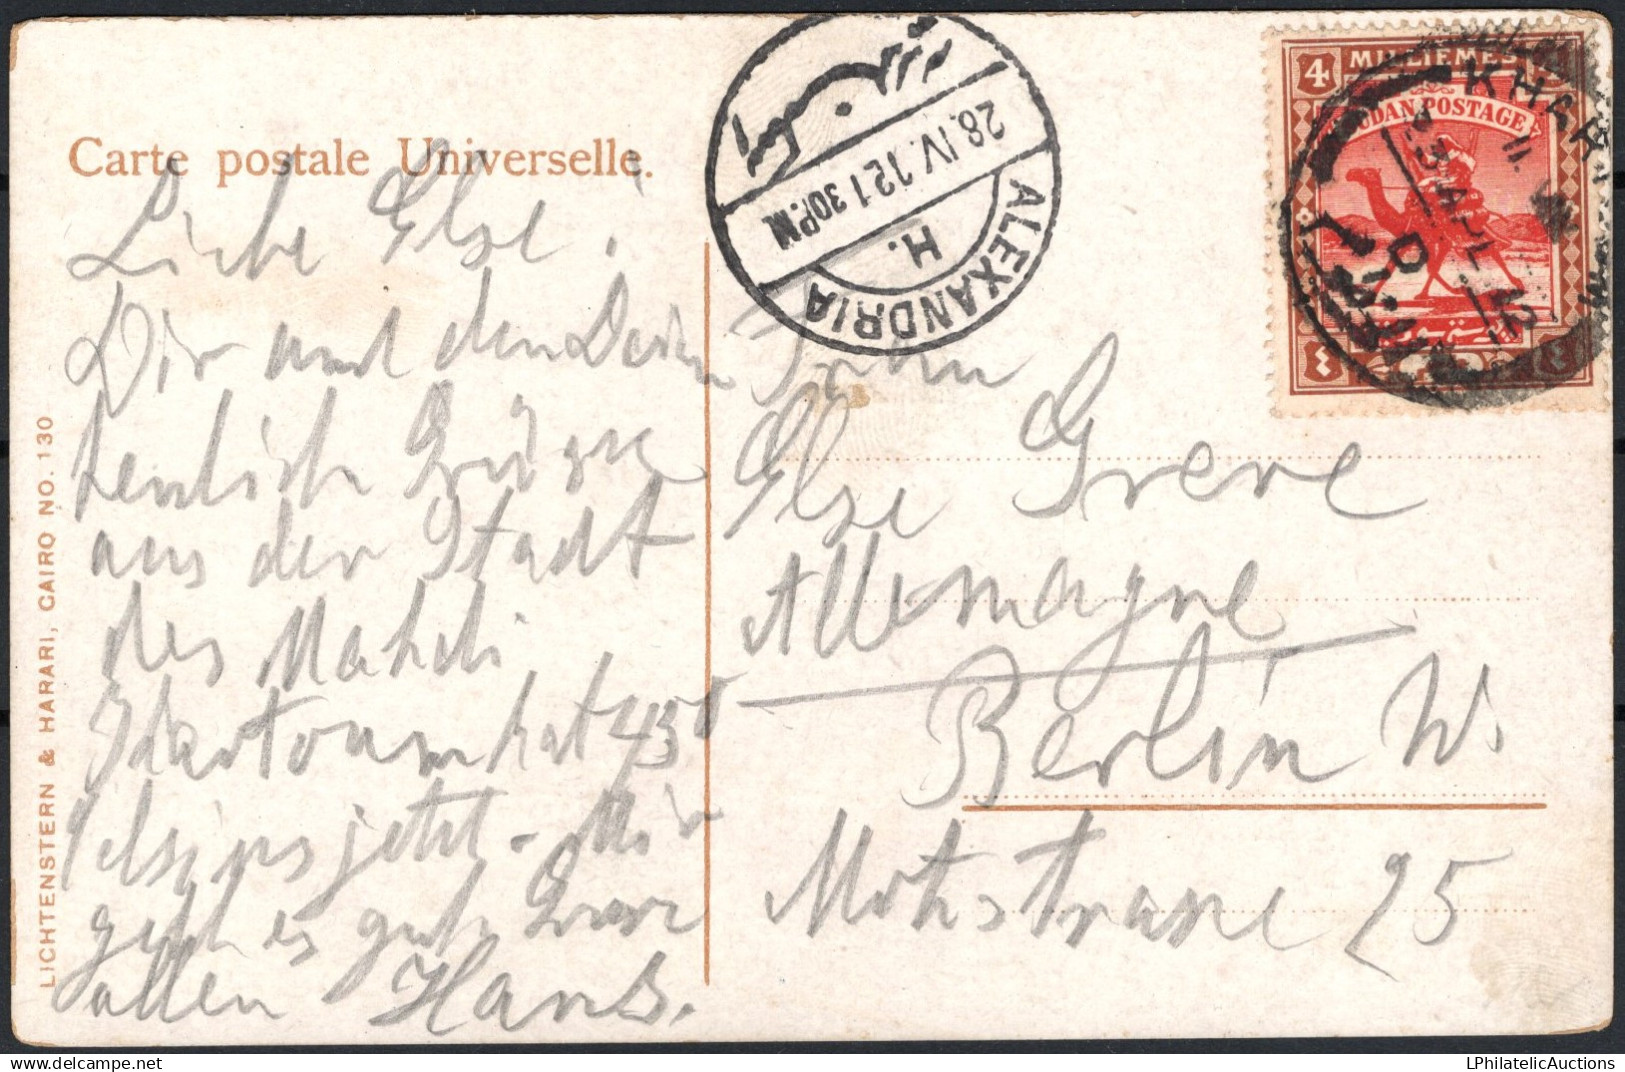 Carte postale Universelle.
Liebe Else!
Dir und den Deinen
herzlich Grüsse
aus der Stadt
des Mahdi
Khartoum hat 45°
Celsius jetzt - Mir
geht es gut
allen Hans.
LICHTENSTERN & HARARI, CAIRO NO. 130
ALEXANDRIA
H.
28.IV.12 1 30P.M
4 MILLIEMES
SUDAN POSTAGE
KHAR
23 APL 12
Frau
Else Greve
Allemagne
Berlin W.
Motzstrasse 25
LPhilatelicAuctions